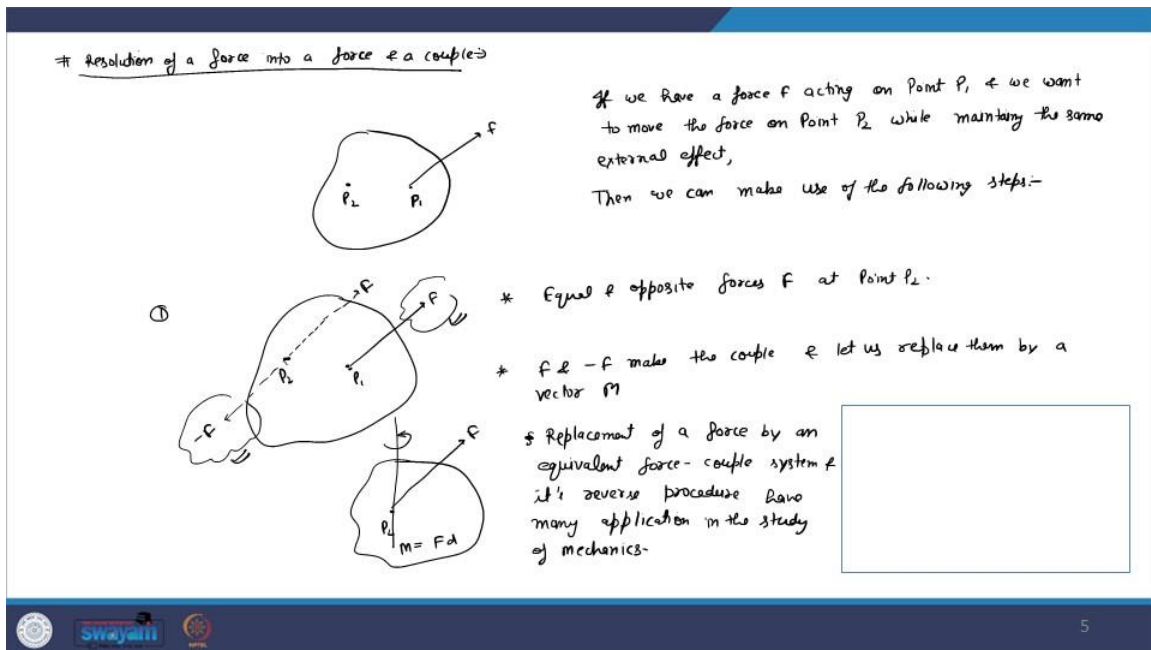 # Resolution of a force into a force & a couple:-
If we have a force F acting on Point P1 & we want
to move the force on Point P2 while maintaing the same
external effect,
Then we can make use of the following steps:-
F
P2
P1
①
F
F
P2
P1
-F
* Equal & opposite forces F at Point P2.
* F & -F make the couple & let us replace them by a
vector M
F
P2
M = Fd
* Replacement of a force by an
equivalent force-couple system &
it's reverse procedure have
many application in the study
of mechanics-
swayam
5